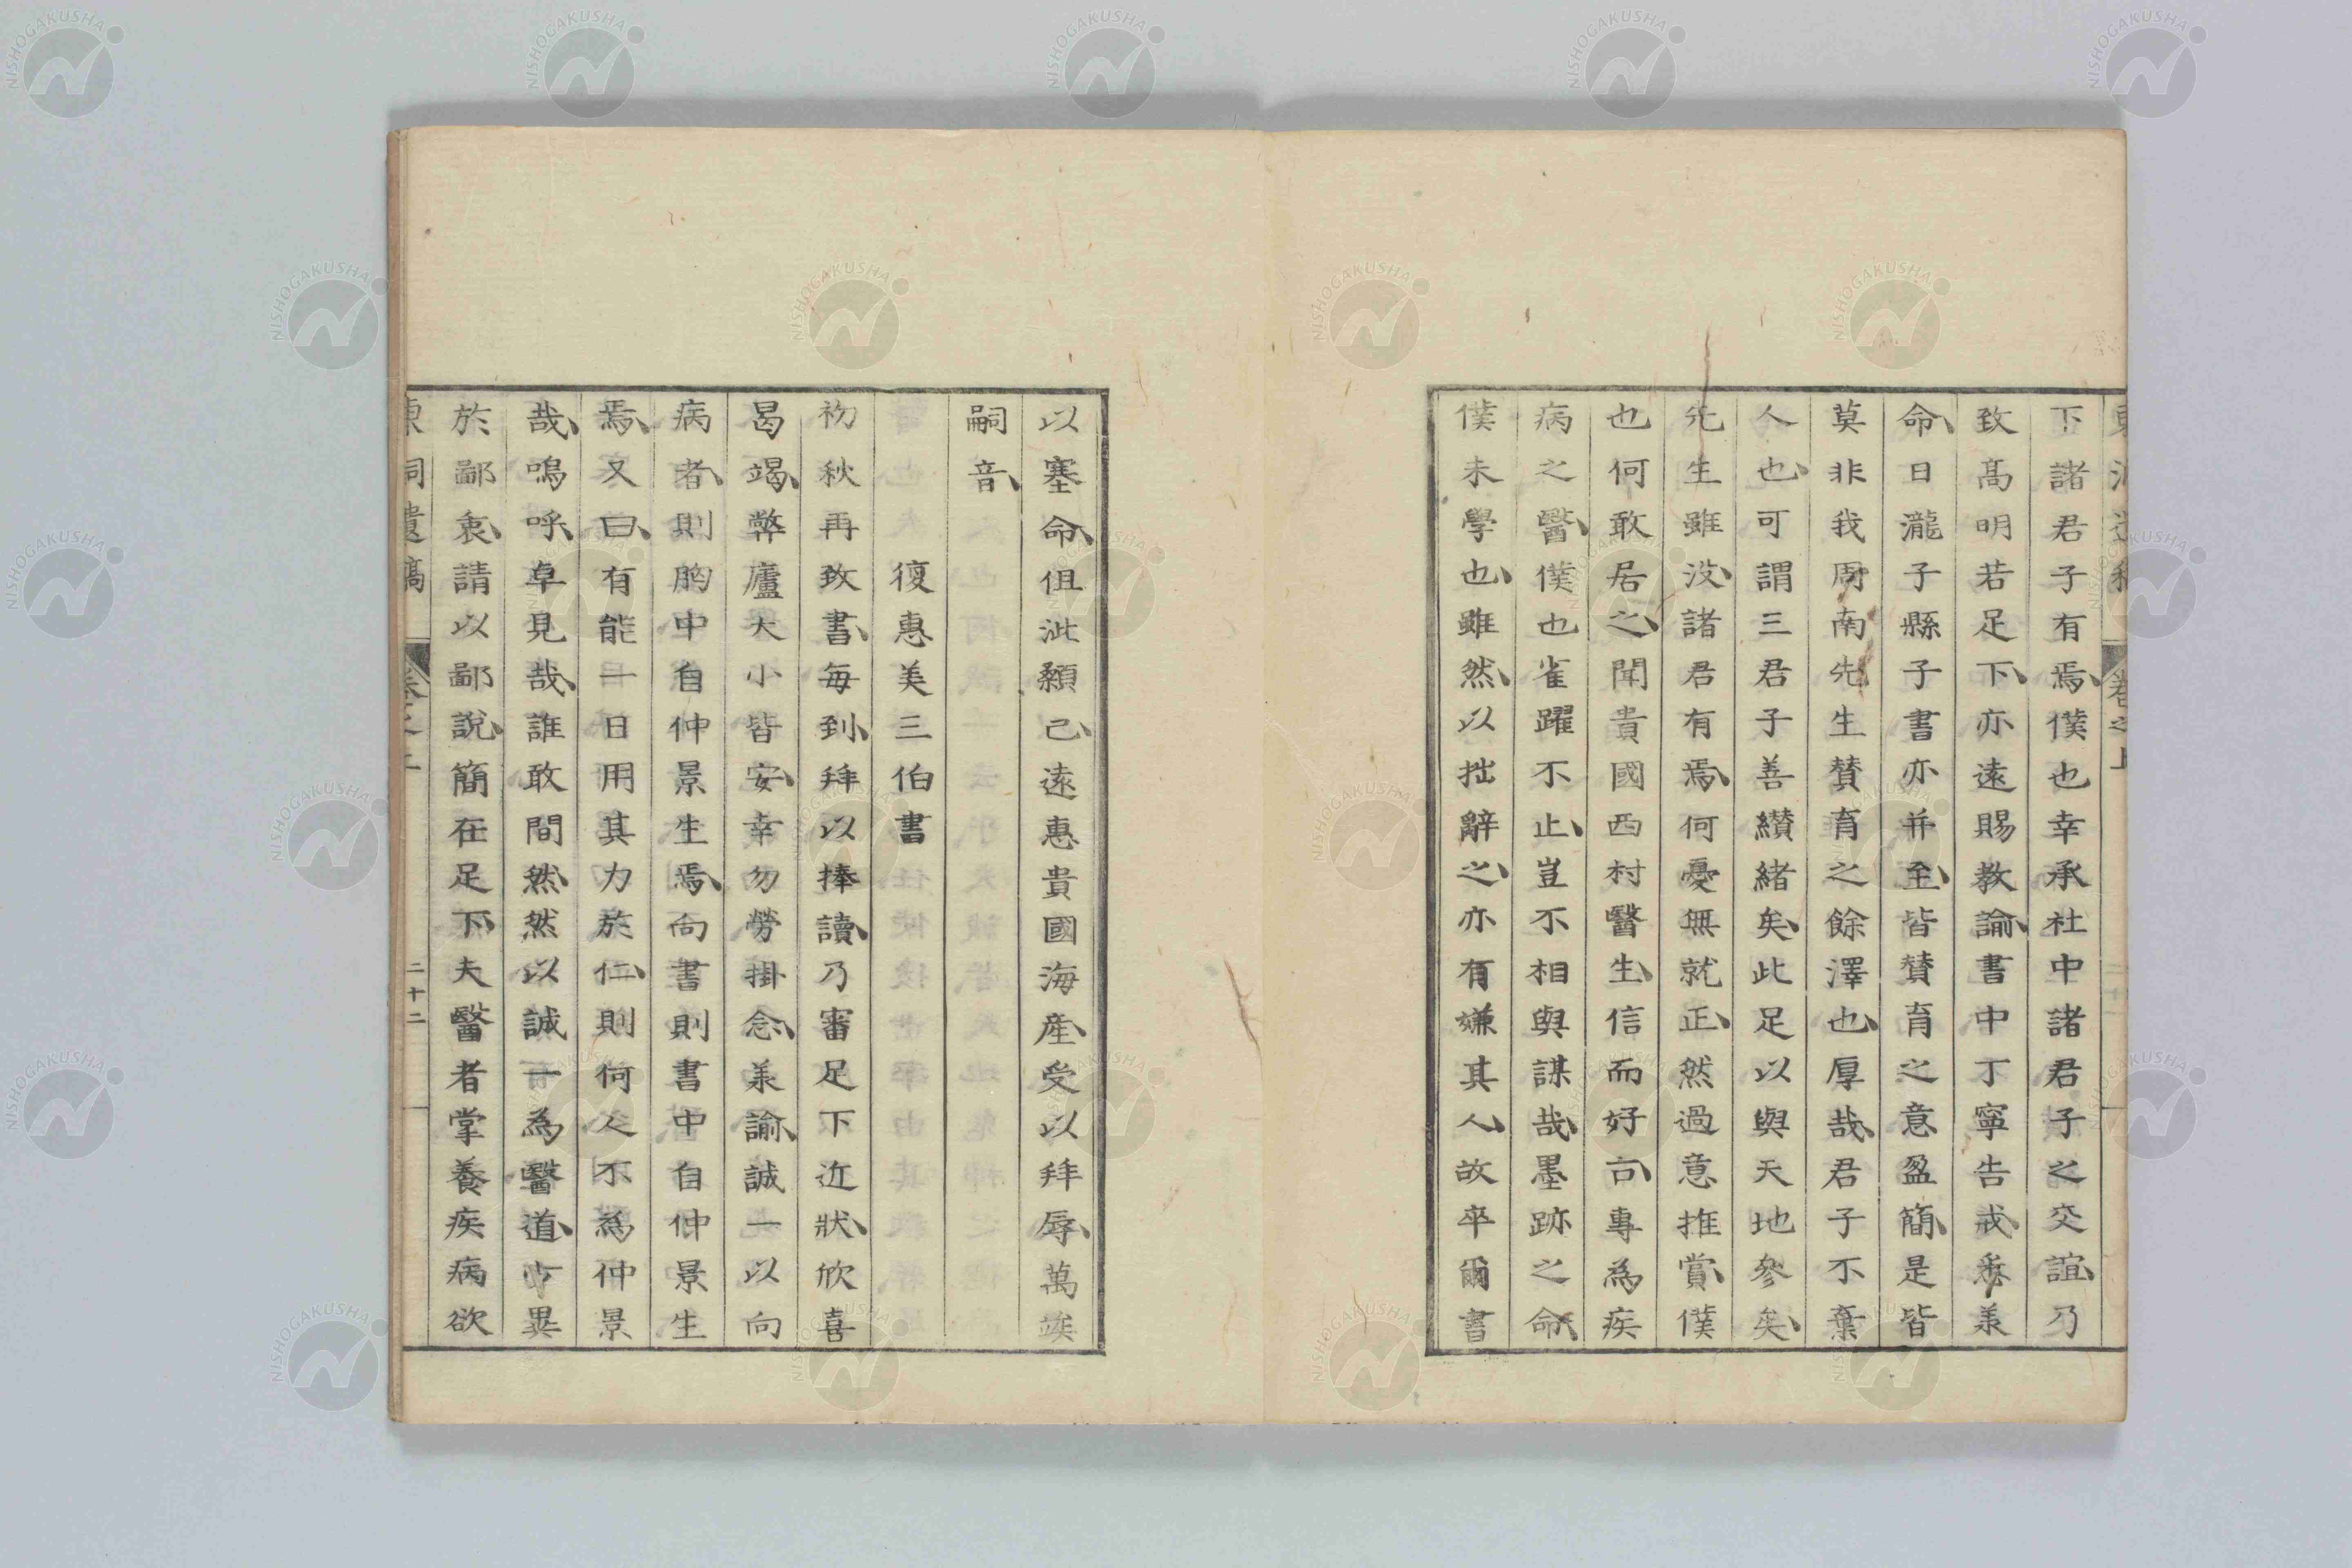 下諸君子有焉、僕也幸承社中諸君子之交誼、乃
致高明若足下、亦遠賜教諭、書中丁寧告戒、秂羕
命、日瀧子縣子書亦并至、皆贊育之意盈簡、是皆
莫非我周南先生贊育之餘澤也、厚哉、君子不棄
人也、可謂三君子善纘緒矣、此足以與天地參矣、
先生雖沒、諸君有焉、何憂無就正、然過意推賞、僕
也何敢居之、聞貴國西村醫生、信而好古、專為疾
病之醫、僕也雀躍不止、豈不相與謀哉、墨跡之命、
僕未學也、雖然、以拙辭之、亦有嫌其人、故卒爾書
以塞命、伹泚顙已、遠惠貴國海産、受以拜辱、萬竢
嗣音、
復惠美三伯書
初秋再致書、每到、拜以捧讀、乃審足下近狀、欣喜
曷竭、弊廬大小皆安、幸勿勞掛念、羕諭、誠一以向
病者、則胸中自仲景生焉、向書則書中自仲景生
焉、又曰、有能一日用其力於仁、則何人不為仲景
哉、嗚呼、卓見哉、誰敢間然、然以誠一為醫道、少異
於鄙衷、請以鄙說、簡在足下、夫醫者掌養疾病欲
東洞遺稿 卷之上 二十二